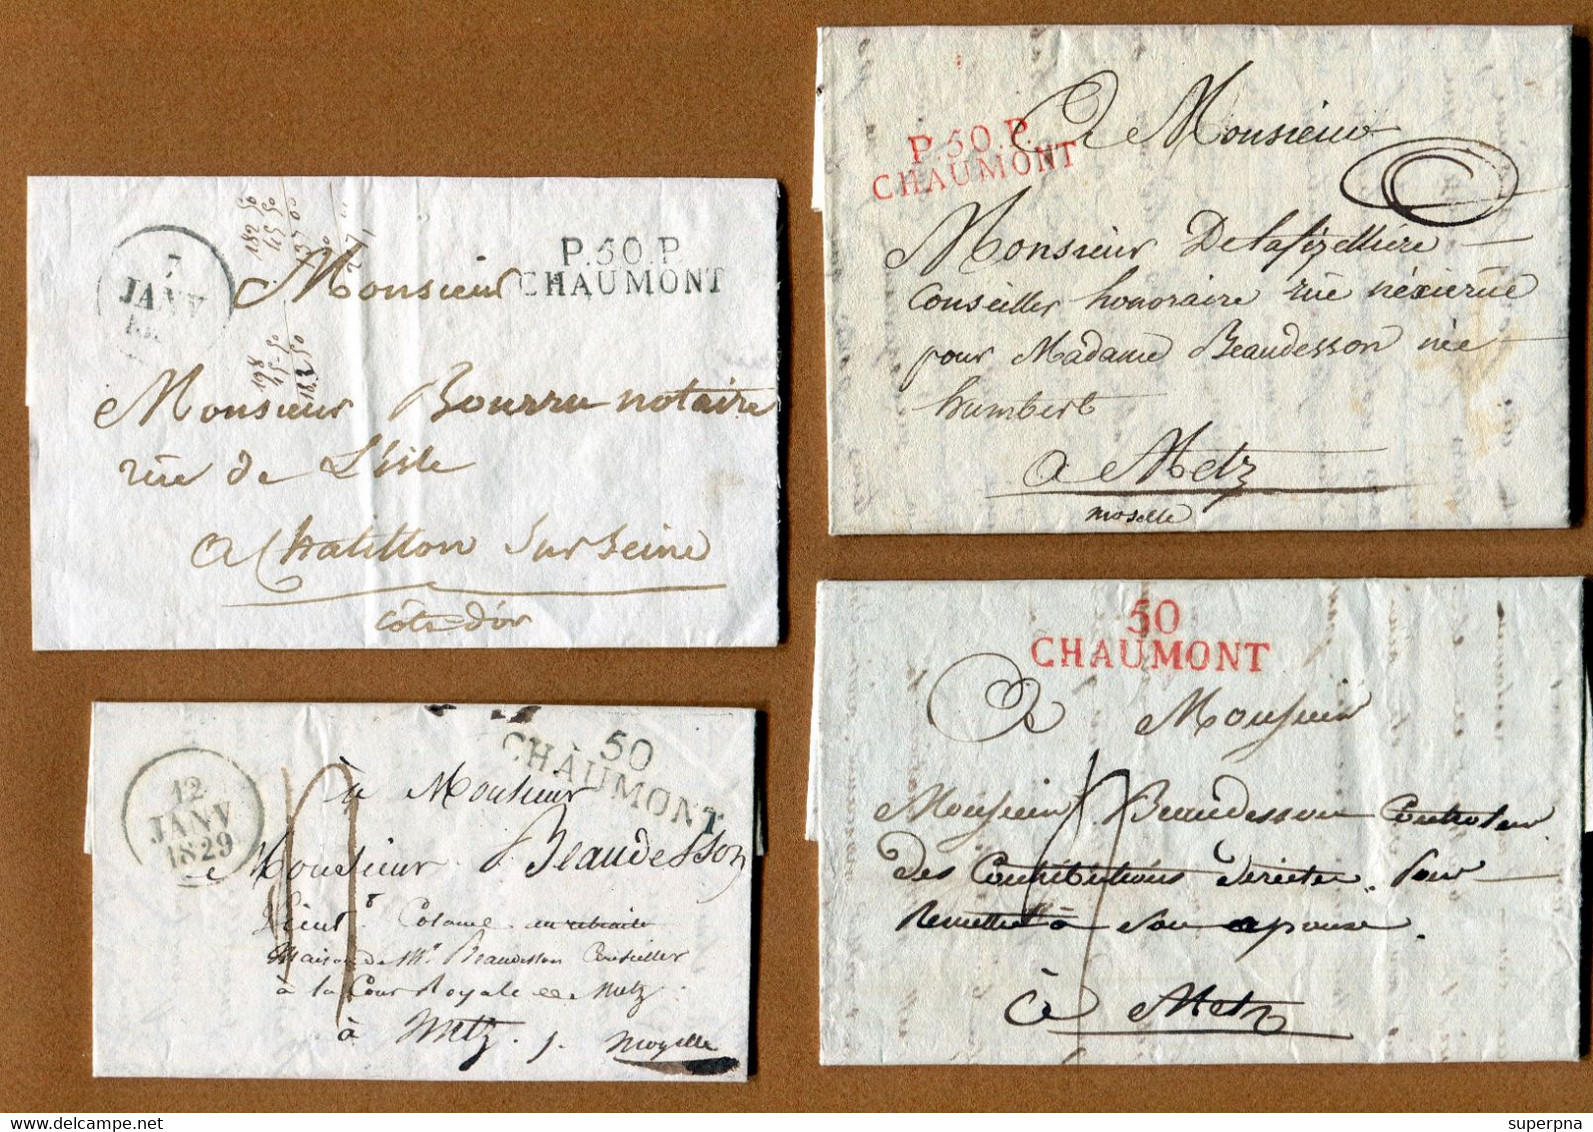 7
JANV
P.50.P.
CHAUMONT
182 50
45 50
137 00
Monsieur
868
45-50
Monsieur Bourru notaire
rüe de L'isle
a Chatillon Sur Seine
Côte d'or
P.50.P.
CHAUMONT
A Monsieur
Monsieur Delafizelliere
Conseiller honoraire rüe néxierüe
pour Madame Beaudesson née
humbert
a Metz
moselle
12
JANV
1829
50
CHAUMONT
à Monsieur
Monsieur Beaudesson
Lieut Colonel en retraite
Maison de Mr Beaudesson Conseiller
à la Cour Royale de Metz
à Metz. Mozelle
50
CHAUMONT
A Monsieur
Monsieur Beaudesson Controleur
des Contributions directes. Pour
Remettre à son epouse.
à Metz
delcampe.net
superpna